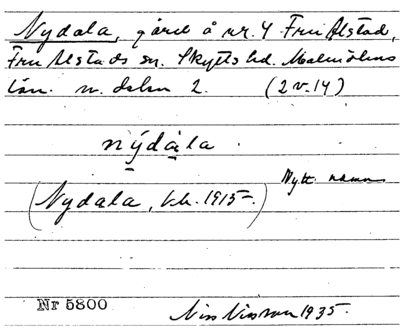 Nydala, gård å nr. 4 Fru Alstad,
Fru Alstads sn. Skytts hd. Malmöhus
län. n. delen 2. (2 v. 14)
nýdàla.
(Nydala, kb. 1915-.) Nytt namn
Nr 5800 Nils Nilsson 1935.